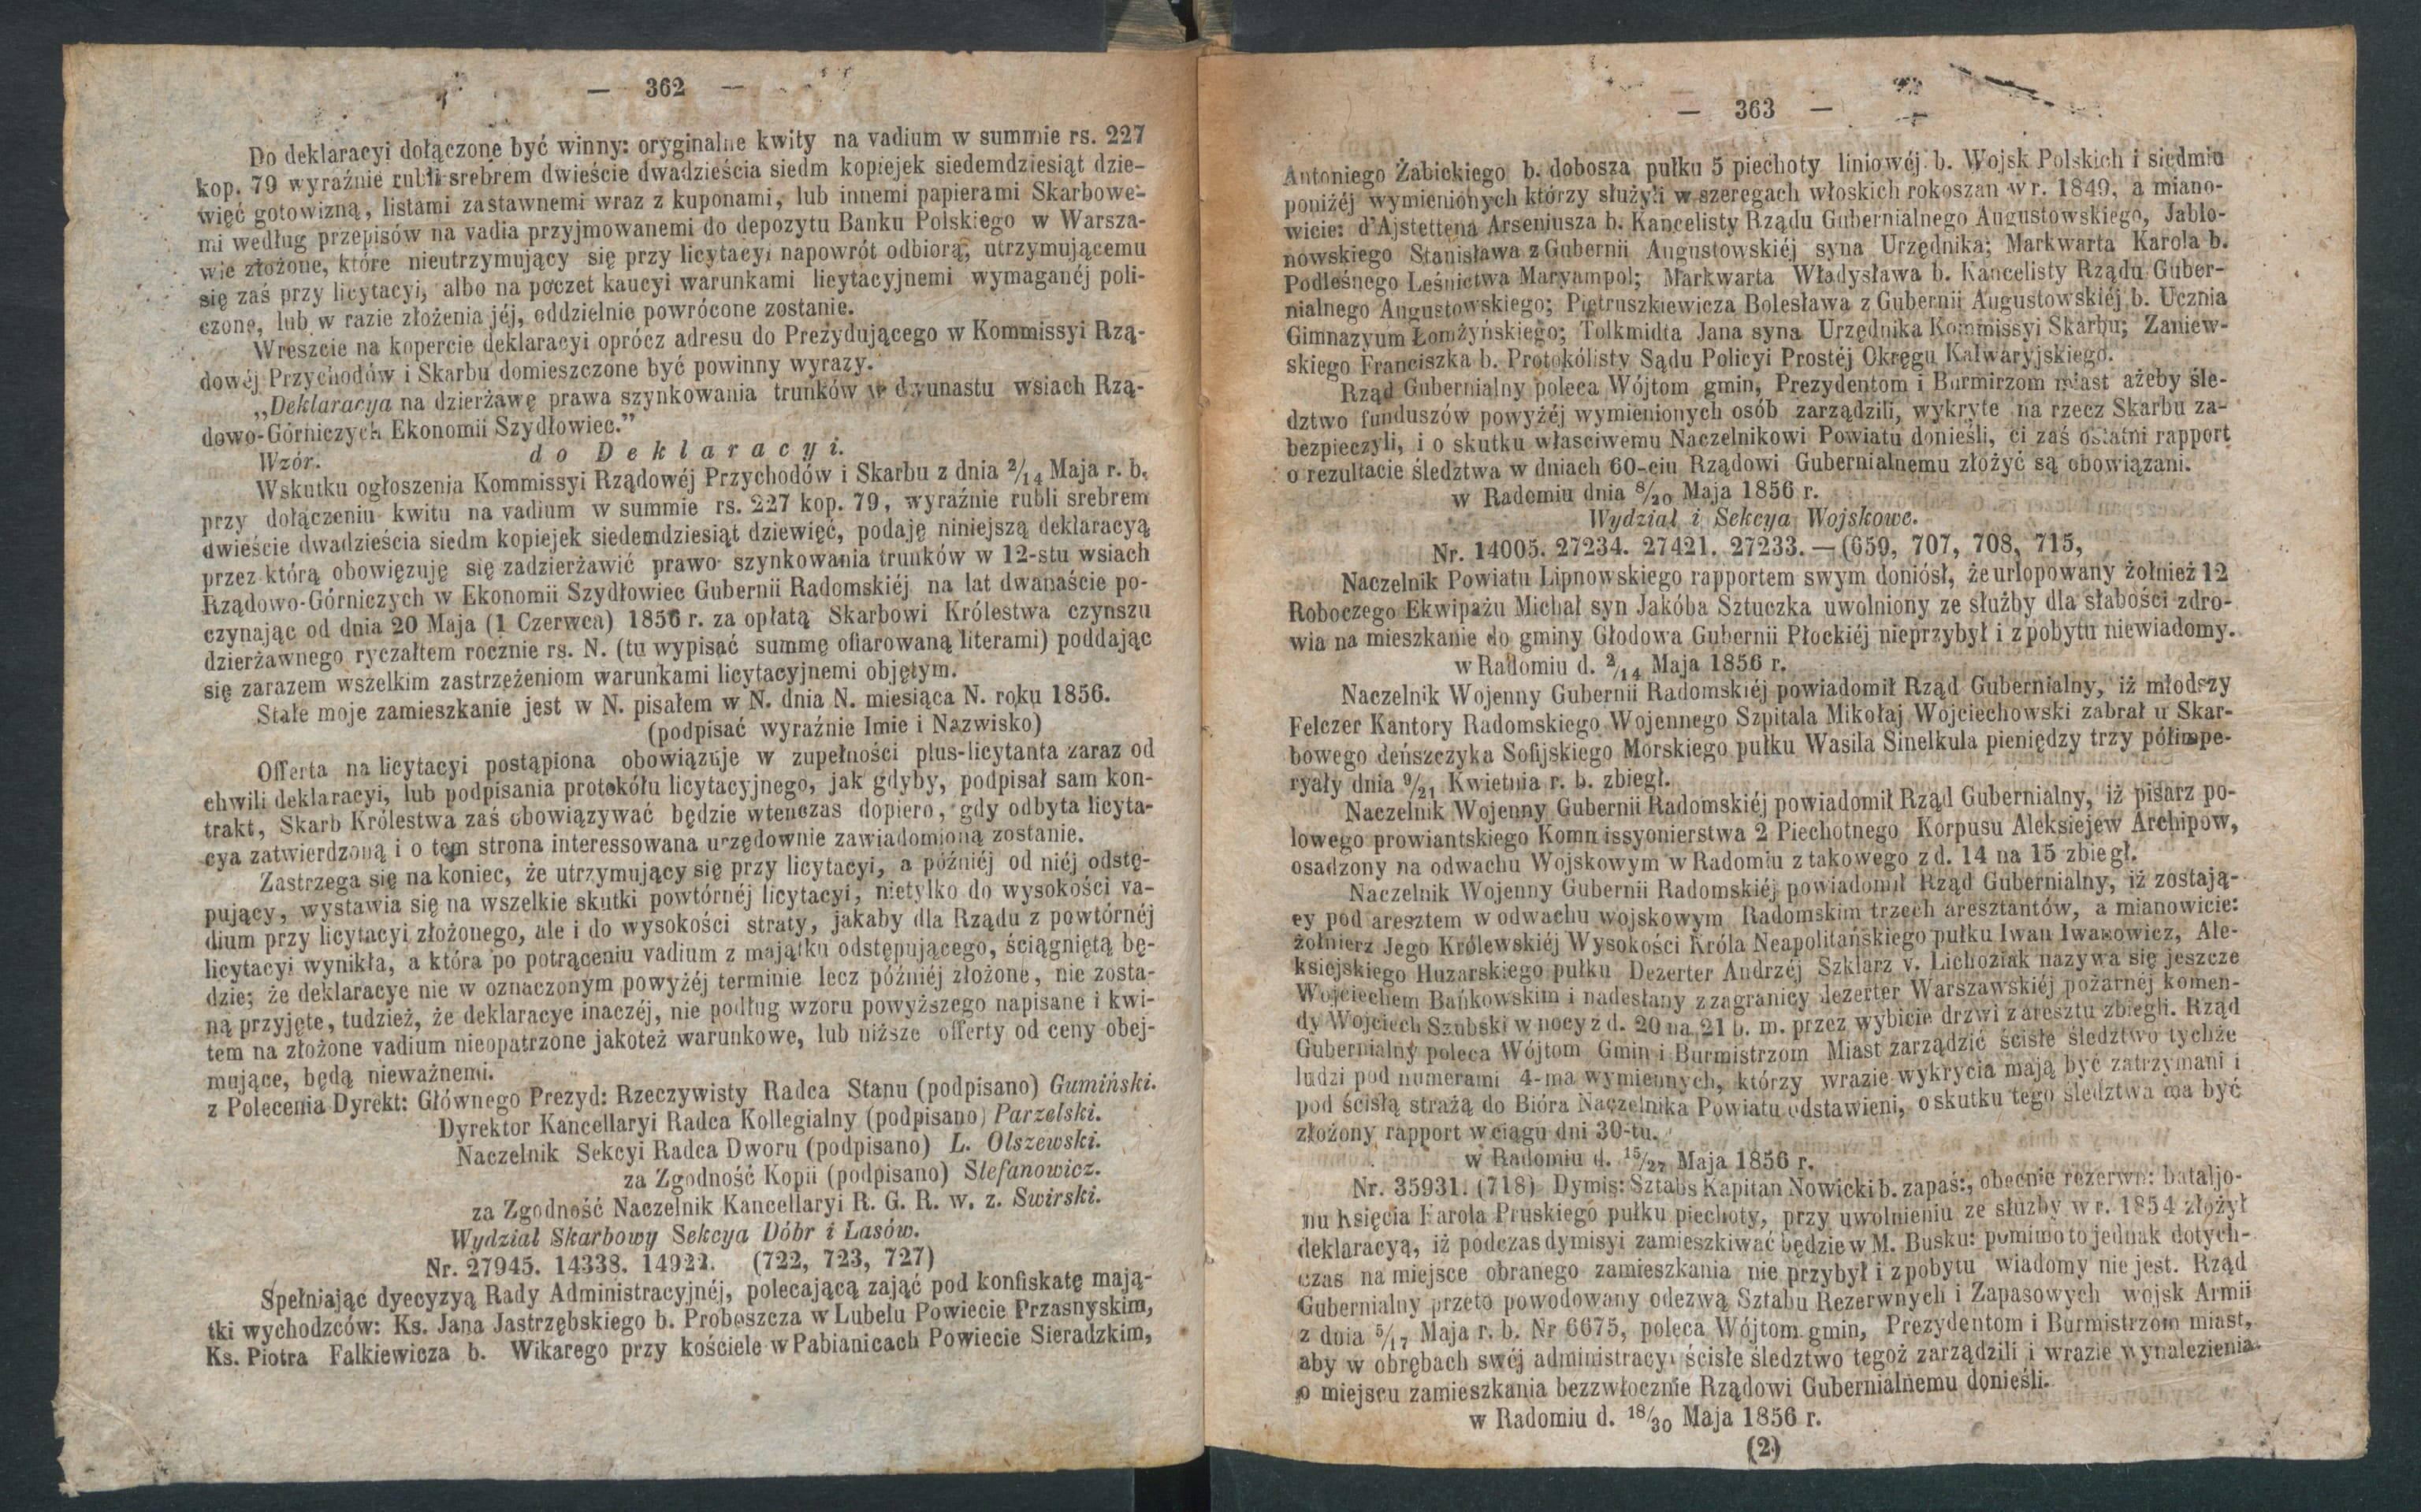 — 362 —
Do deklaracyi dołączone być winny: oryginalne kwity na vadium w summie rs. 227
kop. 79 wyraźnie rubli srebrem dwieście dwadzieścia siedm kopiejek siedemdziesiąt dzie-
więć gotowizną, listami zastawnemi wraz z kuponami, lub innemi papierami Skarbowe-
mi według przepisów na vadia przyjmowanemi do depozytu Banku Polskiego w Warsza-
wie złożone, które nieutrzymujący się przy licytacyi napowrót odbiorą, utrzymującemu
się zaś przy licytacyi, albo na poczet kaucyi warunkami licytacyjnemi wymaganéj poli-
czone, lub w razie złożenia jéj, oddzielnie powrócone zostanie.
Wreszcie na kopercie deklaracyi oprócz adresu do Prezydującego w Kommissyi Rzą-
dowéj Przychodów i Skarbu domieszczone być powinny wyrazy.
„Deklaracya na dzierżawę prawa szynkowania trunków w dwunastu wsiach Rzą-
dowo-Górniczych Ekonomii Szydłowiec.”
Wzór. do Deklaracyi.
Wskutku ogłoszenia Kommissyi Rządowéj Przychodów i Skarbu z dnia 2/14 Maja r. b.
przy dołączeniu kwitu na vadium w summie rs. 227 kop. 79, wyraźnie rubli srebrem
dwieście dwadzieścia siedm kopiejek siedemdziesiąt dziewięć, podaję niniejszą deklaracyą
przez którą obowięzuję się zadzierżawić prawo szynkowania trunków w 12-stu wsiach
Rządowo-Górniczych w Ekonomii Szydłowiec Gubernii Radomskiéj na lat dwanaście po-
czynając od dnia 20 Maja (1 Czerwca) 1856 r. za opłatą Skarbowi Królestwa czynszu
dzierżawnego ryczałtem rocznie rs. N. (tu wypisać summę ofiarowaną literami) poddając
się zarazem wszelkim zastrzeżeniom warunkami licytacyjnemi objętym.
Stałe moje zamieszkanie jest w N. pisałem w N. dnia N. miesiąca N. roku 1856.
(podpisać wyraźnie Imie i Nazwisko)
Offerta na licytacyi postąpiona obowiązuje w zupełności plus-licytanta zaraz od
chwili deklaracyi, lub podpisania protokółu licytacyjnego, jak gdyby, podpisał sam kon-
trakt, Skarb Królestwa zaś obowiązywać będzie wtenczas dopiero, gdy odbyta licyta-
cya zatwierdzoną i o tem strona interessowana urzędownie zawiadomioną zostanie.
Zastrzega się na koniec, że utrzymujący się przy licytacyi, a późniéj od niéj odstę-
pujący, wystawia się na wszelkie skutki powtórnéj licytacyi, nietylko do wysokości va-
dium przy licytacyi złożonego, ale i do wysokości straty, jakaby dla Rządu z powtórnéj
licytacyi wynikła, a która po potrąceniu vadium z majątku odstępującego, ściągniętą bę-
dzie; że deklaracye nie w oznaczonym powyżéj terminie lecz późniéj złożone, nie zosta-
ną przyjęte, tudzież, że deklaracye inaczéj, nie podług wzoru powyższego napisane i kwi-
tem na złożone vadium nieopatrzone jakoteż warunkowe, lub niższe offerty od ceny obej-
mujące, będą nieważnemi.
z Polecenia Dyrekt: Głównego Prezyd: Rzeczywisty Radca Stanu (podpisano) Gumiński.
Dyrektor Kancellaryi Radca Kollegialny (podpisano) Parzelski.
Naczelnik Sekcyi Radca Dworu (podpisano) L. Olszewski.
za Zgodność Kopii (podpisano) Stefanowicz.
za Zgodność Naczelnik Kancellaryi R. G. R. w. z. Swirski.
Wydział Skarbowy Sekcya Dóbr i Lasów.
Nr. 27945. 14338. 14922. (722, 723, 727)
Spełniając dyecyzyą Rady Administracyjnéj, polecającą zająć pod konfiskatę mają-
tki wychodzców: Ks. Jana Jastrzębskiego b. Proboszcza w Lubelu Powiecie Przasnyskim,
Ks. Piotra Falkiewicza b. Wikarego przy kościele w Pabianicach Powiecie Sieradzkim,
— 363 —
Antoniego Żabickiego b. dobosza pułku 5 piechoty liniowéj b. Wojsk Polskich i siedmiu
poniżéj wymienionych którzy służyli w szeregach włoskich rokoszan w r. 1849, a miano-
wicie: d'Ajstettena Arseniusza b. Kancelisty Rządu Gubernialnego Augustowskiego, Jabło-
nowskiego Stanisława z Gubernii Augustowskiéj syna Urzędnika; Markwarta Karola b.
Podleśnego Leśnictwa Maryampol; Markwarta Władysława b. Kancelisty Rządu Guber-
nialnego Augustowskiego; Pietruszkiewicza Bolesława z Gubernii Augustowskiéj b. Ucznia
Gimnazyum Łomżyńskiego; Tolkmidta Jana syna Urzędnika Kommissyi Skarbu; Zaniew-
skiego Franciszka b. Protokólisty Sądu Policyi Prostéj Okręgu Kalwaryjskiego.
Rząd Gubernialny poleca Wójtom gmin, Prezydentom i Burmirzom miast ażeby śle-
dztwo funduszów powyżéj wymienionych osób zarządzili, wykryte na rzecz Skarbu za-
bezpieczyli, i o skutku właściwemu Naczelnikowi Powiatu donieśli, ci zaś ostatni rapport
o rezultacie śledztwa w dniach 60-ciu Rządowi Gubernialnemu złożyć są obowiązani.
w Radomiu dnia 8/20 Maja 1856 r.
Wydział i Sekcya Wojskowe.
Nr. 14005. 27234. 27421. 27233. — (659, 707, 708, 715,
Naczelnik Powiatu Lipnowskiego rapportem swym doniósł, że urlopowany żołnież 12
Roboczego Ekwipażu Michał syn Jakóba Sztuczka uwolniony ze służby dla słabości zdro-
wia na mieszkanie do gminy Głodowa Gubernii Płockiéj nieprzybył i z pobytu niewiadomy.
w Radomiu d. 2/14 Maja 1856 r.
Naczelnik Wojenny Gubernii Radomskiéj powiadomił Rząd Gubernialny, iż młodszy
Felczer Kantory Radomskiego Wojennego Szpitala Mikołaj Wojciechowski zabrał u Skar-
bowego deńszczyka Sofijskiego Morskiego pułku Wasila Sinelkula pieniędzy trzy półimpe-
ryały dnia 9/21 Kwietnia r. b. zbiegł.
Naczelnik Wojenny Gubernii Radomskiéj powiadomił Rząd Gubernialny, iż pisarz po-
lowego prowiantskiego Kommissyonierstwa 2 Piechotnego Korpusu Aleksiejew Archipow,
osadzony na odwachu Wojskowym w Radomiu z takowego z d. 14 na 15 zbiegł.
Naczelnik Wojenny Gubernii Radomskiéj powiadomił Rząd Gubernialny, iż zostają-
cy pod aresztem w odwachu wojskowym Radomskim trzech aresztantów, a mianowicie:
żołnierz Jego Królewskiéj Wysokości Króla Neapolitańskiego pułku Iwan Iwanowicz, Ale-
ksiejskiego Huzarskiego pułku Dezerter Andrzéj Szklarz v. Lichoziak nazywa się jeszcze
Wojciechem Bańkowskim i nadesłany z zagranicy dezerter Warszawskiéj pożarnéj komen-
dy Wojciech Szubski w nocy z d. 20 na 21 b. m. przez wybicie drzwi z aresztu zbiegli. Rząd
Gubernialny poleca Wójtom Gmin i Burmistrzom Miast zarządzić ścisłe śledztwo tychże
ludzi pod numerami 4-ma wymiennych, którzy wrazie wykrycia mają być zatrzymani i
pod ścisłą strażą do Bióra Naczelnika Powiatu odstawieni, o skutku tego śledztwa ma być
złożony rapport w ciągu dni 30-tu.
w Radomiu d. 15/27 Maja 1856 r.
Nr. 35931. (718) Dymis: Sztabs Kapitan Nowicki b. zapaś:, obecnie rezerwn: bataljo-
nu Księcia Karola Pruskiego pułku piechoty, przy uwolnieniu ze służby w r. 1854 złożył
deklaracyą, iż podczas dymisyi zamieszkiwać będzie w M. Busku: pomimo to jednak dotych-
czas na miejsce obranego zamieszkania nie przybył i z pobytu wiadomy nie jest. Rząd
Gubernialny przeto powodowany odezwą Sztabu Rezerwnych i Zapasowych wojsk Armii
z dnia 5/17 Maja r. b. Nr 6675, poleca Wójtom gmin, Prezydentom i Burmistrzom miast,
aby w obrębach swéj administracyi ścisłe śledztwo tegoż zarządzili i wrazie wynalezienia
o miejscu zamieszkania bezzwłocznie Rządowi Gubernialnemu donieśli.
w Radomiu d. 18/30 Maja 1856 r.
(2)